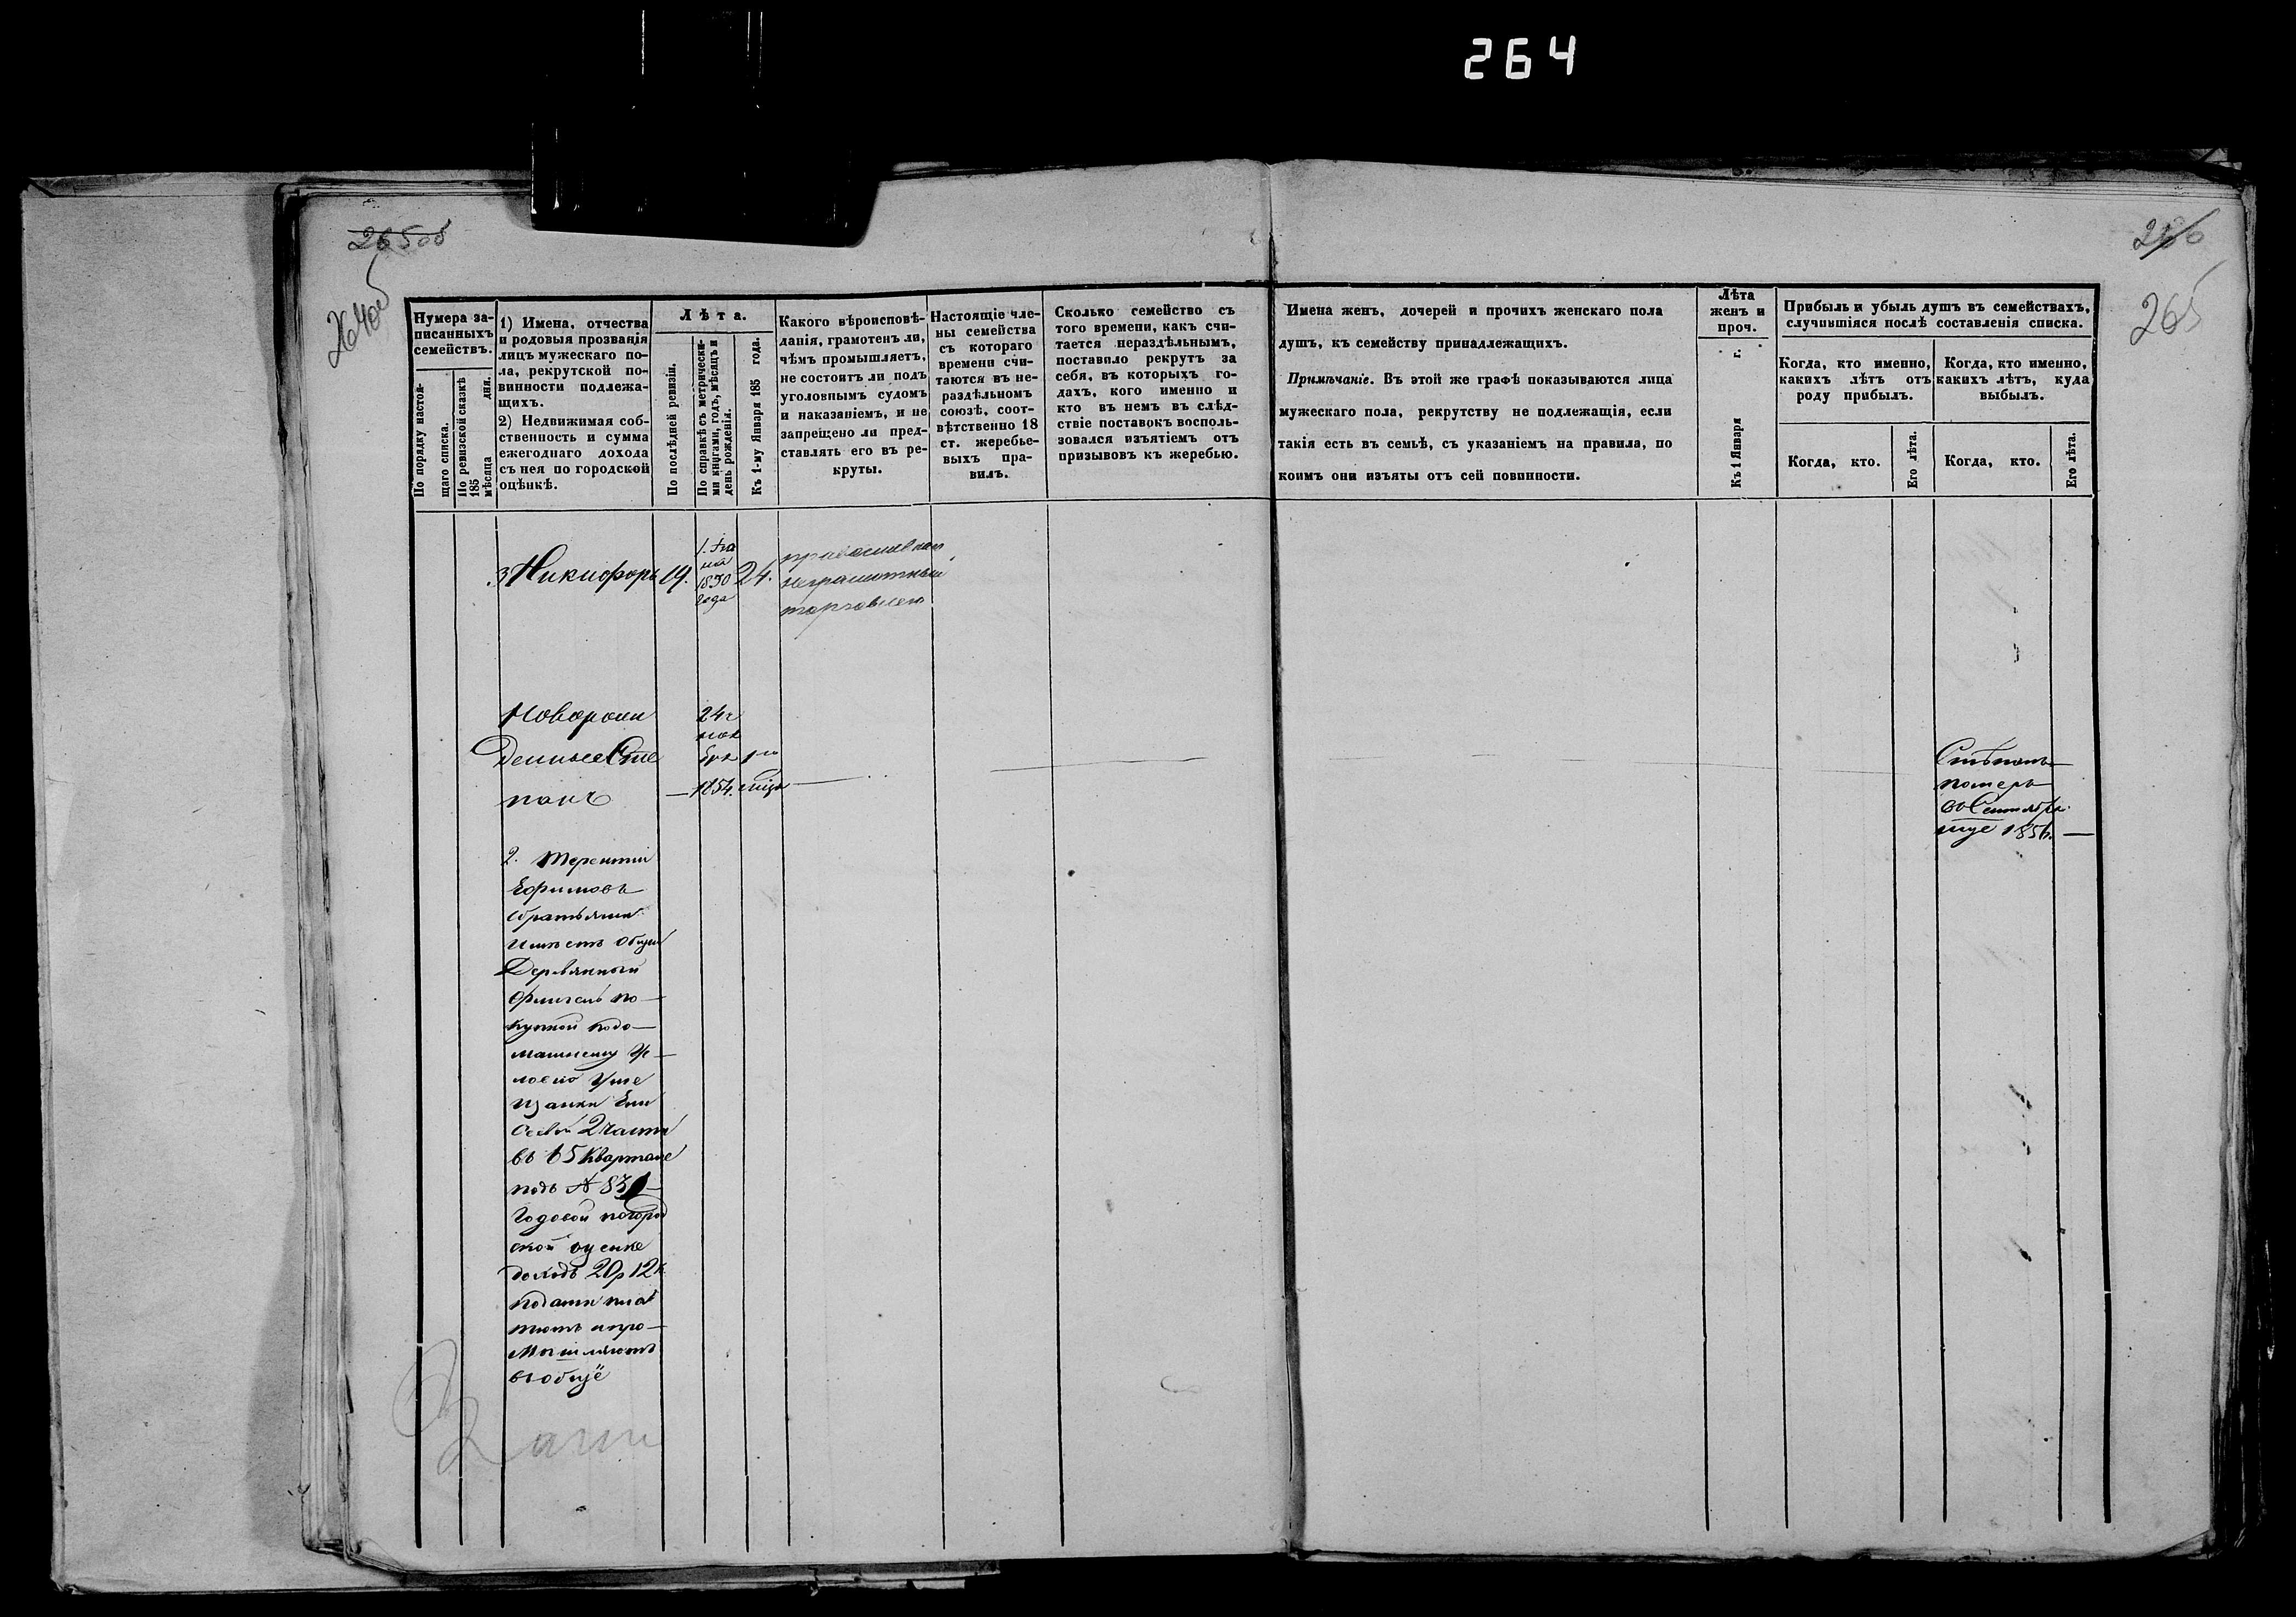 264
265об
264об
266
265
Нумера за-
писанныхъ
семействъ.
По порядку настоя-
щаго списка.
По ревизской сказкѣ
185
мѣсяца дня.
1) Имена, отчества
и родовыя прозванія
лицъ мужескаго по-
ла, рекрутской по-
винности подлежа-
щихъ.
2) Недвижимая соб-
ственность и сумма
ежегоднаго дохода
съ нея по городской
оцѣнкѣ.
Лѣта.
По послѣдней ревизіи.
По справкѣ съ метрически-
ми книгами, годъ, мѣсяцъ и
день рожденія.
Къ 1-му Января 185 года.
Какого вѣроисповѣ-
данія, грамотенъ ли,
чѣмъ промышляетъ,
не состоитъ ли подъ
уголовнымъ судомъ
и наказаніемъ, и не
запрещено ли пред-
ставлять его въ ре-
круты.
Настоящіе чле-
ны семейства
съ котораго
времени счи-
таются въ не-
раздѣльномъ
союзѣ, соот-
вѣтственно 18
ст. жеребье-
выхъ пра-
вилъ.
Сколько семейство съ
того времени, какъ счи-
тается нераздѣльнымъ,
поставило рекрутъ за
себя, въ которыхъ го-
дахъ, кого именно и
кто въ немъ въ слѣд-
ствіе поставокъ восполь-
зовался изъятіемъ отъ
призывовъ къ жеребью.
Имена женъ, дочерей и прочихъ женскаго пола
душъ, къ семейству принадлежащихъ.
Примѣчаніе. Въ этой же графѣ показываются лица
мужескаго пола, рекрутству не подлежащія, если
такія есть въ семьѣ, съ указаніемъ на правила, по
коимъ они изъяты отъ сей повинности.
Лѣта
женъ и
проч.
Къ 1 Января г.
Прибыль и убыль душъ въ семействахъ,
случившіяся послѣ составленія списка.
Когда, кто именно,
какихъ лѣтъ отъ
роду прибылъ.
Когда, кто именно,
какихъ лѣтъ, куда
выбылъ.
Когда, кто.
Его лѣта.
Когда, кто.
Его лѣта.
3 Никифоръ 19. 24.
1830
года
православнаго
неграмотный
торговлею
Новорож
денные Сте
панъ
24г
ноя
бря
1854.
Степанъ
померъ
въ Сентябрѣ
мце 1856.
2. Терентій
Ефимовъ
събратьями
имѣетъ общій
Деревянный
флигель по
купкой
2 части
въ 65 Квартале
подъ №
Годовой погород
ской оценке
доходъ 20р 12к
подати пла
тютъ ипро
мышляютъ
вобще